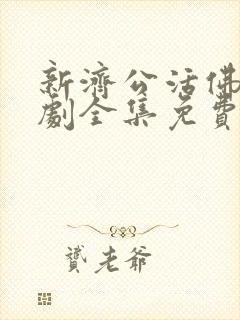 新濟公活佛
劇全集免費
贊老爺